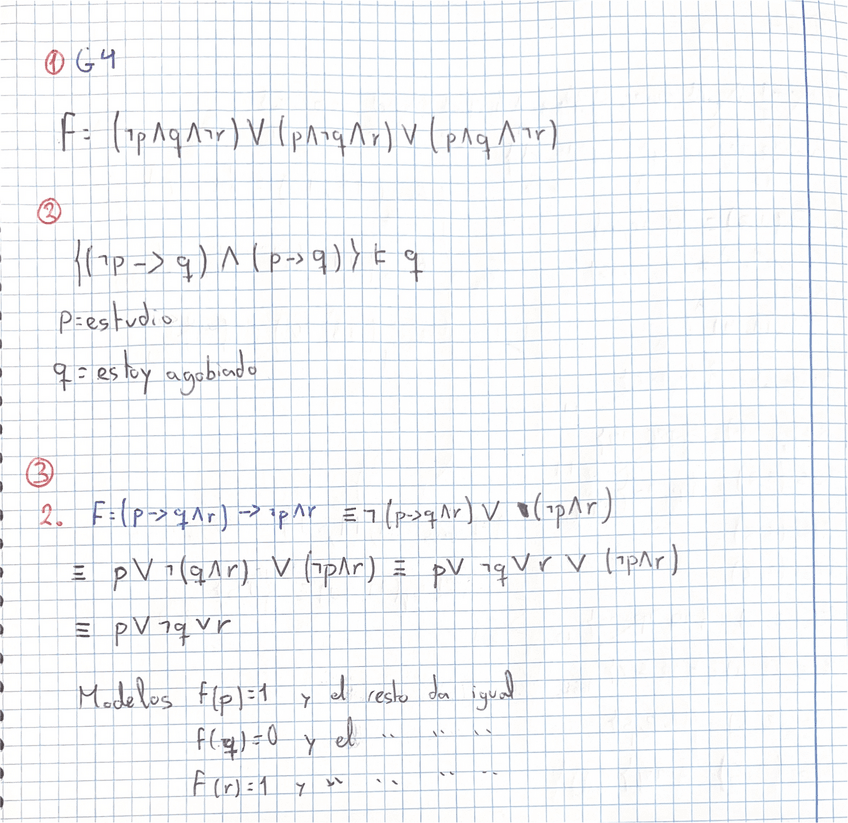 ① G4
F= (¬p∧q∧¬r) ∨ (p∧¬q∧r) ∨ (p∧q∧¬r)
②
{(¬p -> q) ∧ (p -> q)} ⊨ q
p=estudio
q = estoy agobiado
③
2. F=(p->q∧r) -> ¬p∧r ≡ ¬(p->q∧r) ∨ (¬p∧r)
≡ p∨¬(q∧r) ∨ (¬p∧r) ≡ p∨ ¬q∨r ∨ (¬p∧r)
≡ p∨¬q∨r
Modelos f(p)=1 y el resto da igual
f(q)=0 y el " " "
F(r)=1 y " " " "